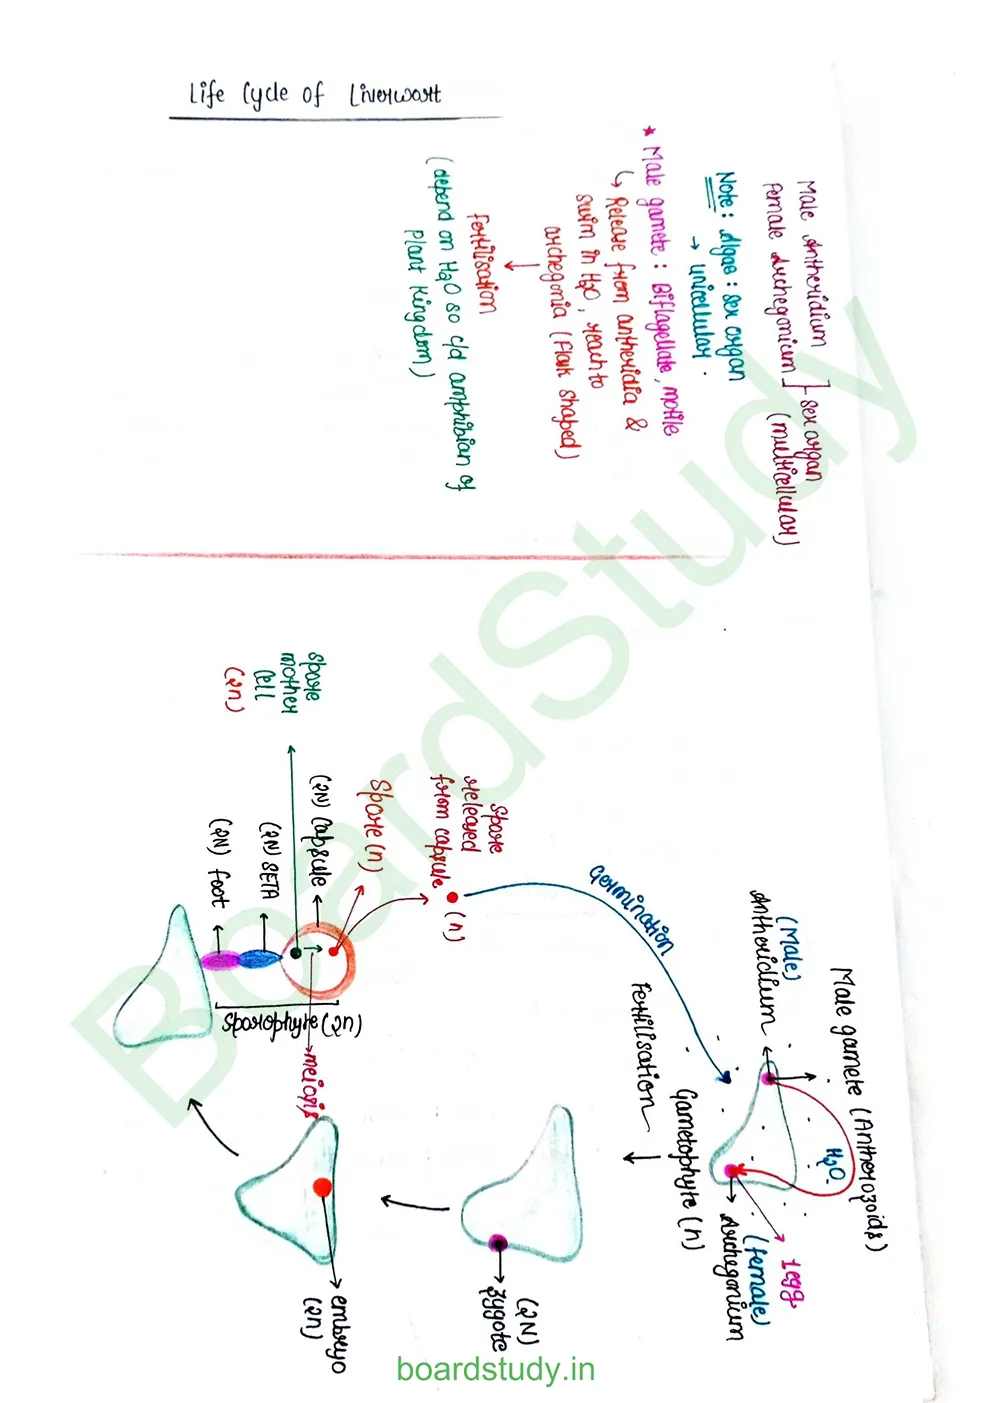 Life Cycle of Liverwort
Male Antheridium ] sex organ
Female Archegonium (multicellular)
Note: Algae: sex organ
→ unicellular.
* Male gamete: Biflagellate, motile
↳ Release from antheridia &
swim in H2O, reach to
archegonia (flask shaped)
↓
fertilisation
(depend on H2O so c/d amphibian of
plant kingdom)
Male gamete (Antherozoids)
(Male)
Antheridium
H2O
1 egg
(female)
Archegonium
Gametophyte (n)
Fertilisation
Germination
Spore
released
from capsule
(n)
Spore (n)
(2N) Capsule
(2N) SETA
(2N) foot
Spore
mother
Cell
(2n)
Sporophyte (2n)
meiosis
(2N)
zygote
embryo
(2n)
BoardStudy
boardstudy.in